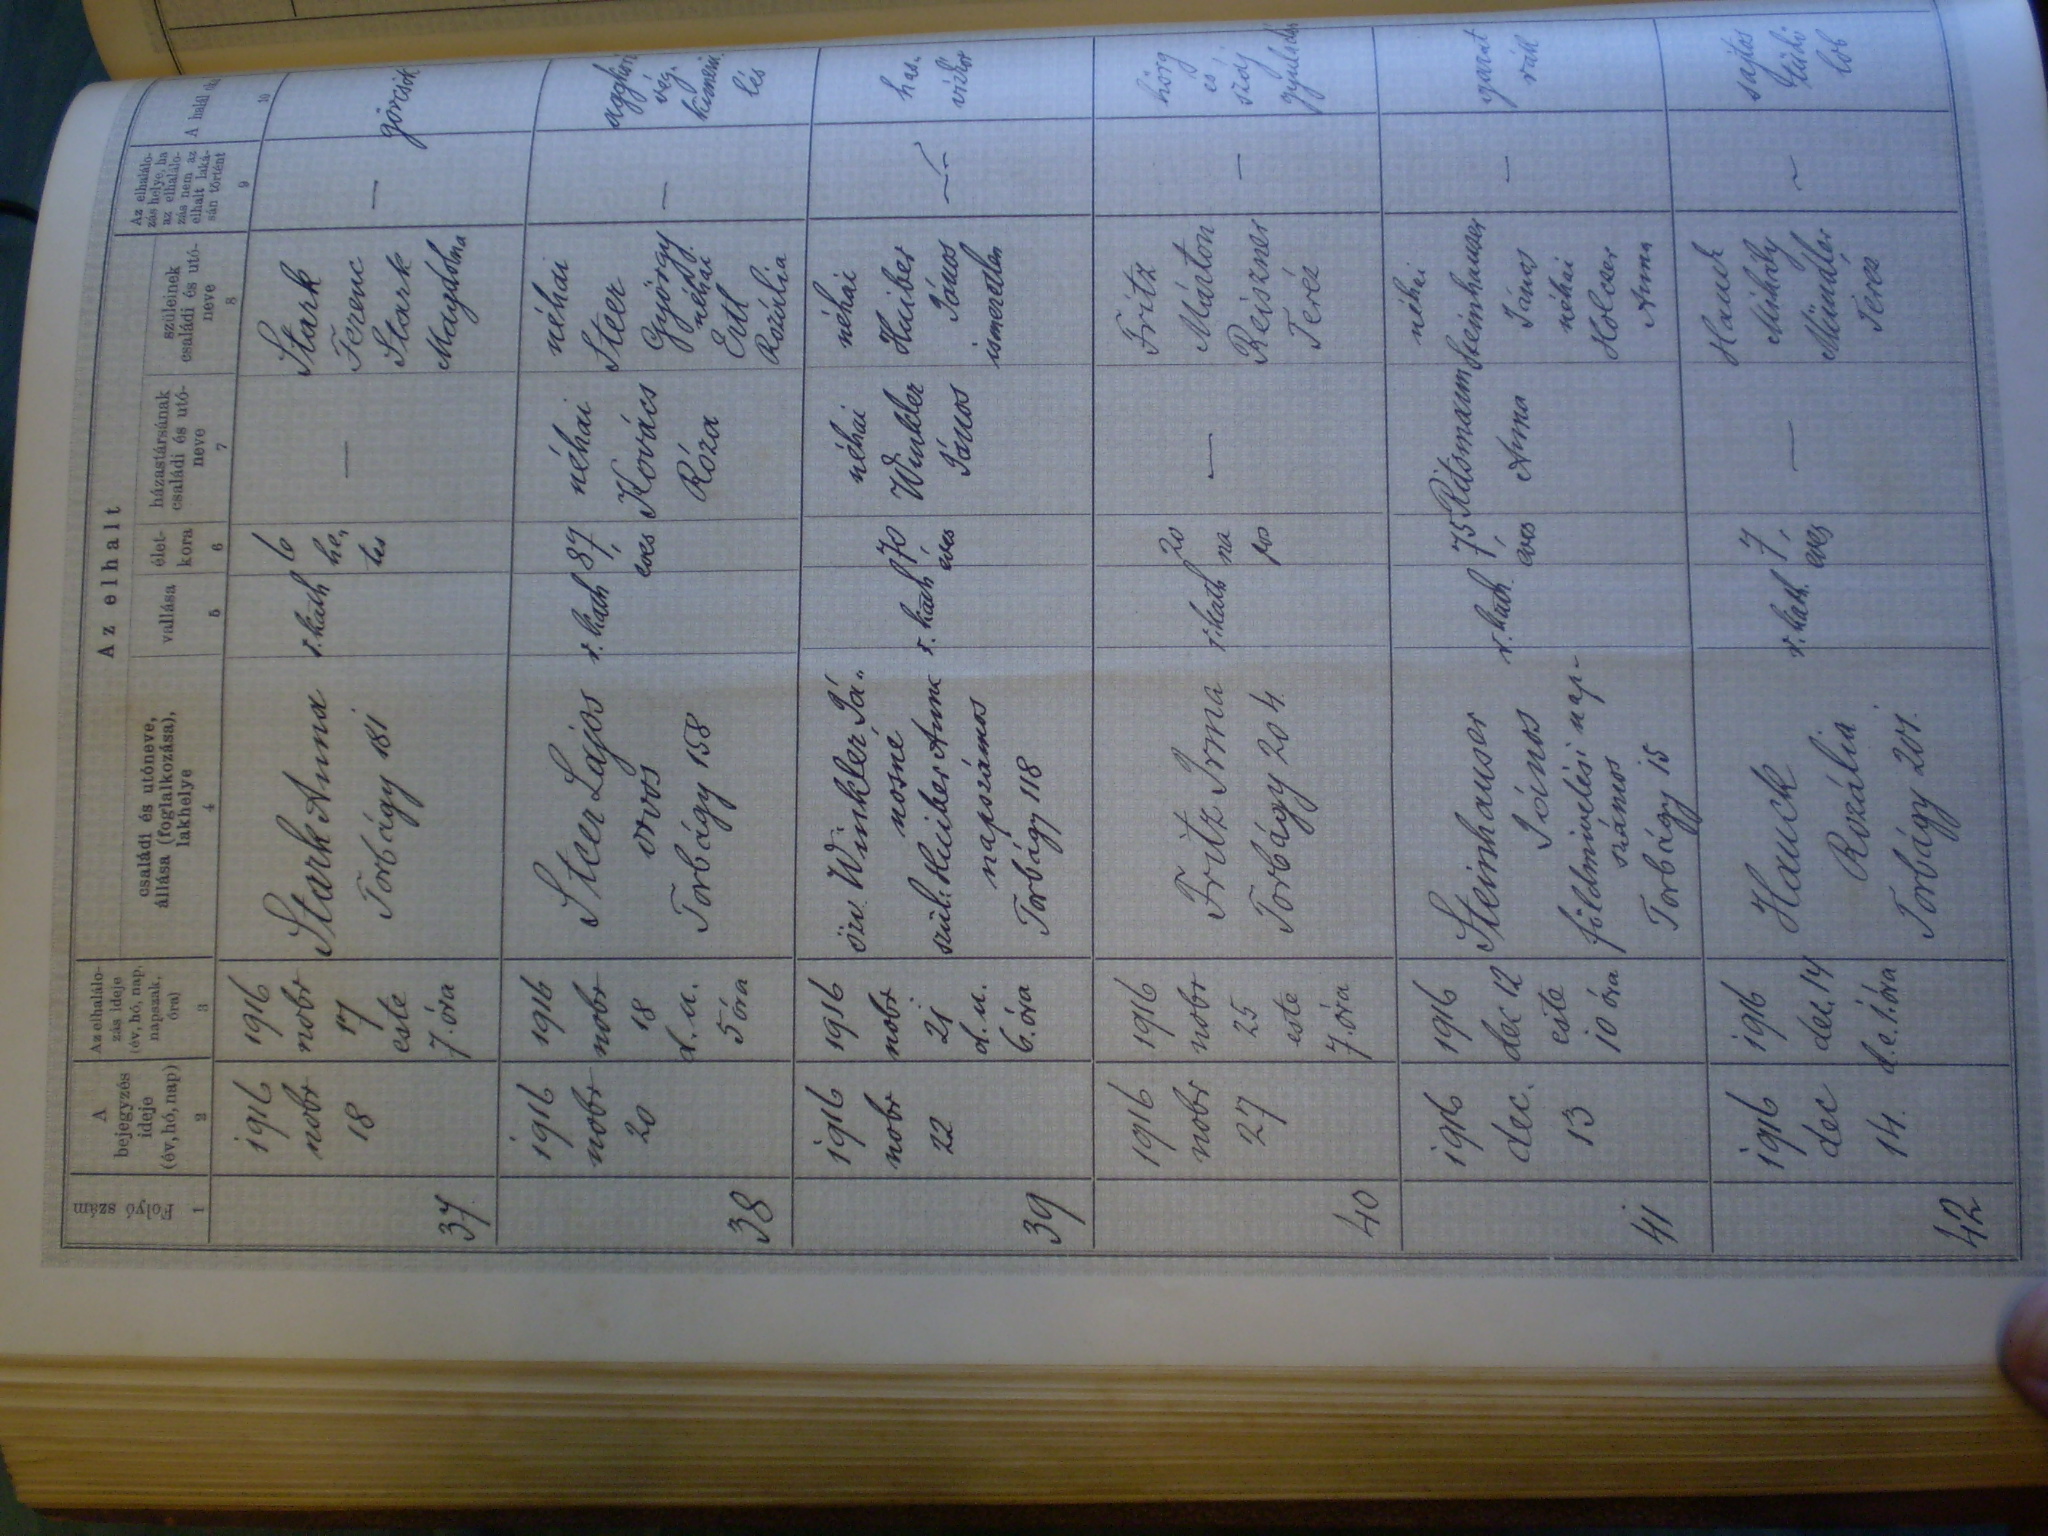 Az elhalt
Folyó szám
A bejegyzés ideje (év, hó, nap)
Az elhalálozás ideje (év, hó, nap, napszak, óra)
családi és utóneve, állása (foglalkozása), lakhelye
vallása
életkora
házastársának családi és utóneve
szüleinek családi és utóneve
Az elhalálozás helye, ha az elhalálozás nem az elhalt lakásán történt
A halál
1 2 3 4 5 6 7 8 9 10
37
1916
nobr
18
1916
nobr
17
este
7. óra
Stark Anna
Torbágy 181
r. kath
6
he,
tes
—
Stark
Ferenc
Stark
Magdolna
—
görcsök
38
1916
nobr
20
1916
nobr
18
d. u.
5 óra
Steer Lajos
orvos
Torbágy 158
r. kath
87,
éves
néhai
Kovács
Róza
néhai
Steer
György
néhai
Ertl
Rozália
—
aggkori
vég.
kimerü
lés
39
1916
nobr
22
1916
nobr
21
d. u.
6. óra
özv. Winkler Já„
nosné
szül. Huiber Anna
napszámos
Torbágy 118
r. kath
70
éves
néhai
Winkler
János
néhai
Huiber
János
ismeretlen
—
has.
vízkór
40
1916
nobr
27
1916
nobr
25
este
7. óra
Fritz Irma
Torbágy 204
r. kath
20
na
pos
—
Fritz
Márton
Reiszner
Teréz
—
hörg
és
41
1916
dec.
13
1916
dec 12
este
10 óra
Steinhauser
János
földmivelési nap-
számos
Torbágy 15
r. kath.
75,
éves
Anna
néhai
Steinhauser
János
néhai
Holczer
Anna
—
42
1916
dec
14.
1916
dec. 14
d. e. 1. óra
Hauck
Rozália
Torbágy 201.
r. kath.
7,
éves
—
Hauck
Mihály
Mündler
Teréz
~
lob